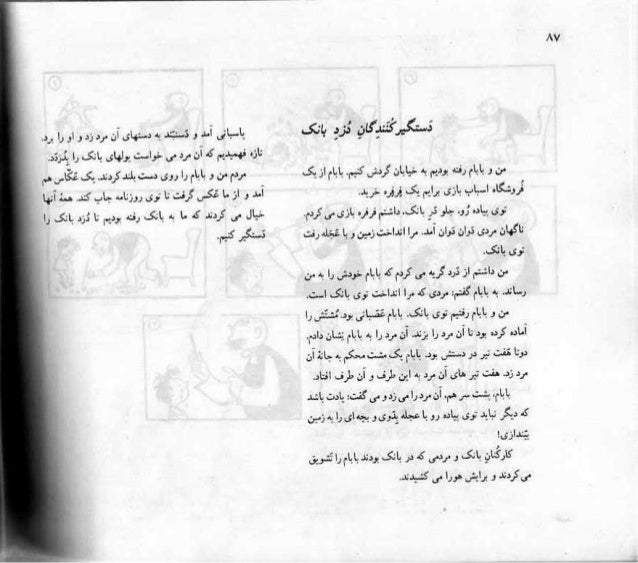 ۸۷
دَستگیر کُنَندِگانِ دُزدِ بانک
من و بابام رفته بودیم به خیابان گردش کنیم. بابام از یک
فُروشگاه اسباب بازی برایم یک فِرفِره خرید.
توی پیاده رُو، جلو دَرِ بانک، داشتم فرفره بازی می کردم.
ناگهان مردی دَوان دَوان آمد. مرا انداخت زمین و با عَجَله رفت
توی بانک.
من داشتم از دَرد گریه می کردم که بابام خودش را به من
رساند. به بابام گفتم: مردی که مرا انداخت توی بانک است.
من و بابام رفتیم توی بانک. بابام عَصَبانی بود. مُشتَش را
آماده کرده بود تا آن مرد را بزند. آن مرد را به بابام نِشان دادم.
دوتا هَفت تیر در دستش بود. بابام یک مشت محکم به چانهٔ آن
مرد زد. هفت تیر های آن مرد به این طرف و آن طرف افتاد.
بابام، پشت سر هم، آن مرد را می زد و می گفت: یادت باشد
که دیگر نباید توی پیاده رو با عجله بِدَوی و بچه ای را به زمین
بیَندازی!
کارکُنانِ بانک و مردمی که در بانک بودند بابام را تَشویق
می کردند و برایش هورا می کشیدند.
پاسبانی آمد و دَستبَند به دستهای آن مرد زد و او را برد.
تازه فهمیدیم که آن مرد می خواست پولهای بانک را بِدُزدَد.
مردم من و بابام را روی دست بلند کردند. یک عَکّاس هم
آمد و از ما عَکس گرفت تا توی روزنامه چاپ کند. همهٔ آنها
خیال می کردند که ما به بانک رفته بودیم تا دُزد بانک را
دَستگیر کنیم.